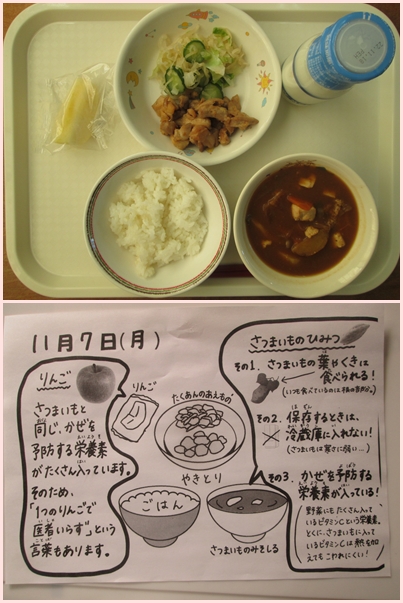 11月7日(月)
りんご
さつまいもと
同じ、かぜを
予防する栄養素
がたくさん入っています。
そのため、
「1つのりんごで
医者いらず」という
言葉もあります。
りんご
たくあんのあえもの
やきとり
ごはん
さつまいものみそしる
さつまいものひみつ
その1. さつまいもの葉やくきは
食べられる!
その2. 保存するときは、
冷蔵庫に入れない!
(さつまいもは寒さに弱い…)
その3. かぜを予防する
栄養素が入っている!
野菜にもたくさん入って
いるビタミンCという栄養素。
とくに、さつまいもに入って
いるビタミンCは熱を加
えてもこわれにくい!